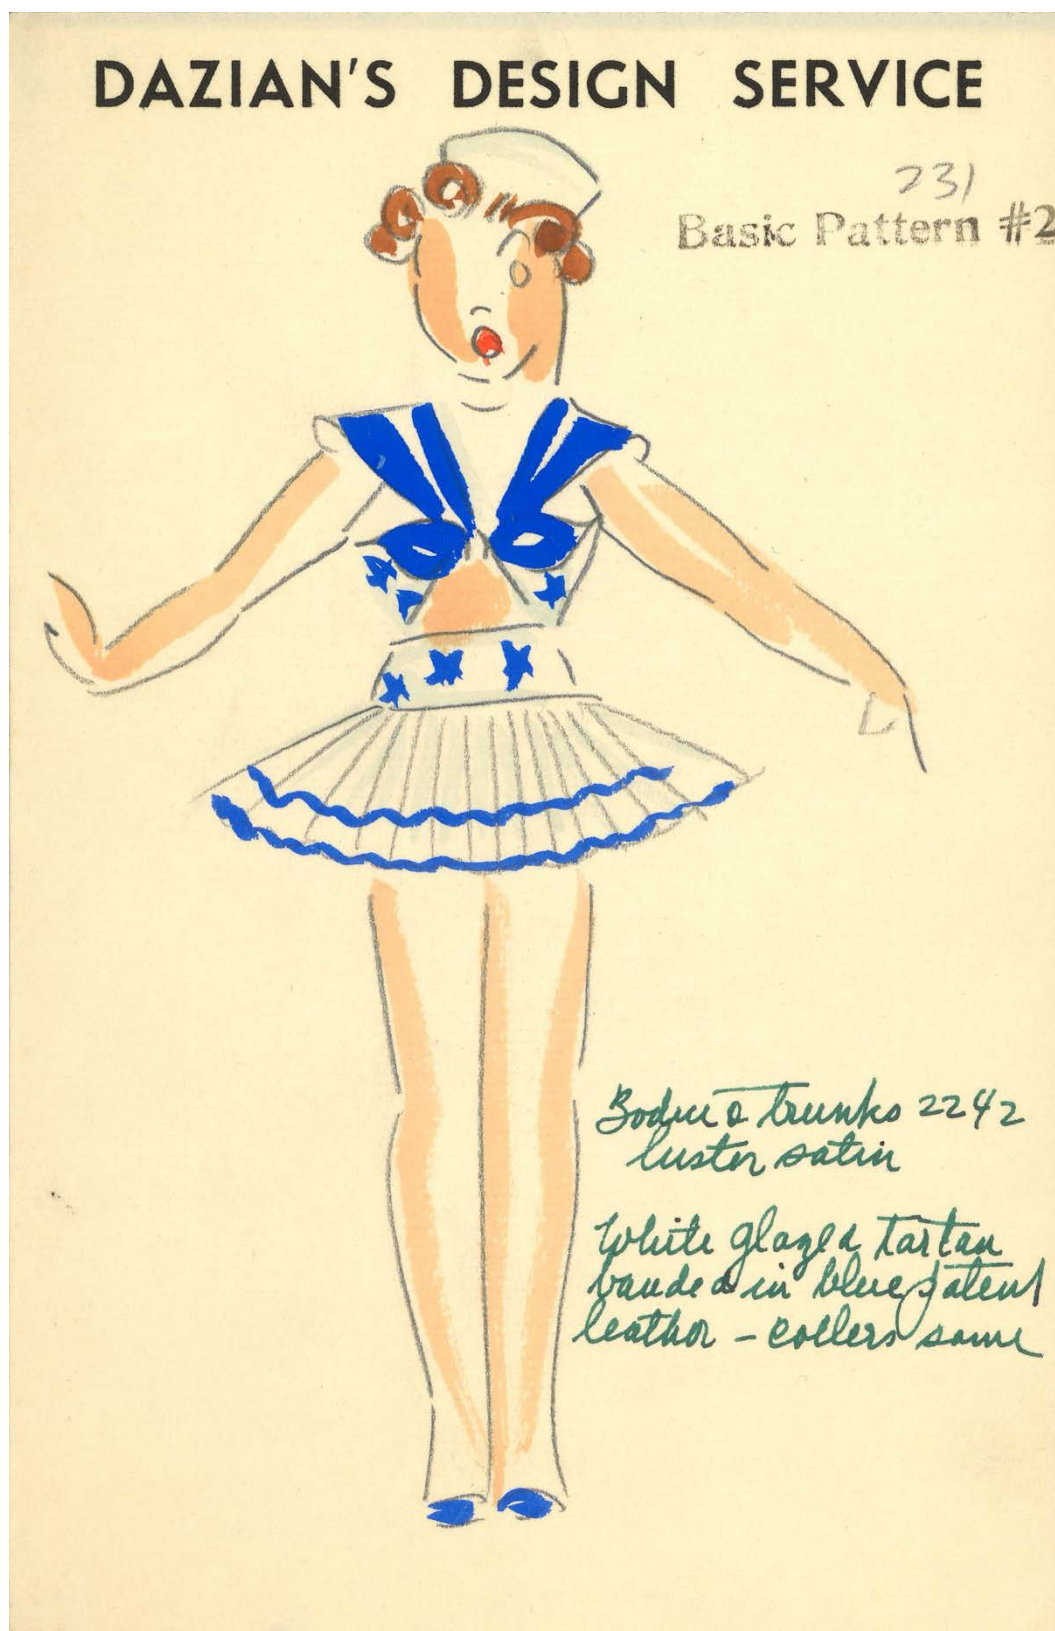 DAZIAN'S DESIGN SERVICE
231
Basic Pattern #2
Bodice & trunks 2242
luster satin
White glazed tartan
banded in blue patent
leather – collers same